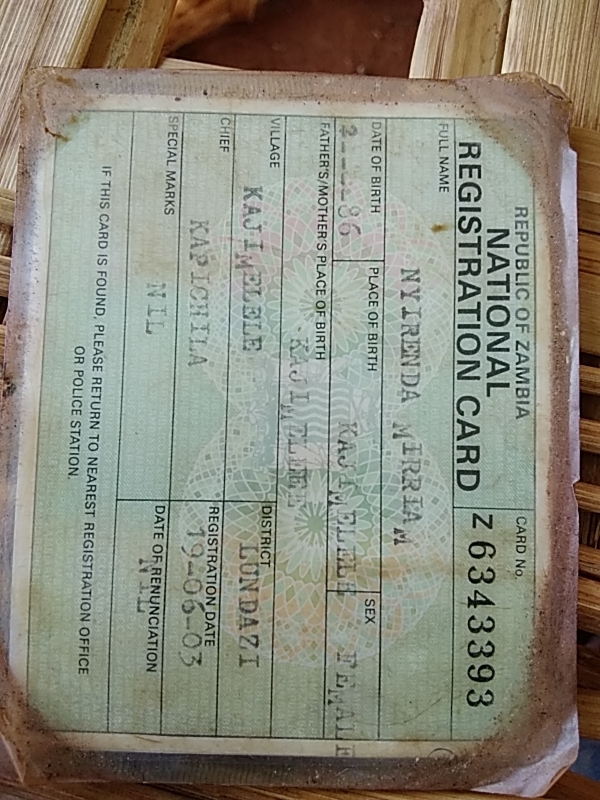 REPUBLIC OF ZAMBIA
NATIONAL
REGISTRATION CARD
CARD No.
Z 6343393
FULL NAME
NYIRENDA MIRRIAM
DATE OF BIRTH
PLACE OF BIRTH
KAJIMELELE
SEX
FEMALE
FATHER'S/MOTHER'S PLACE OF BIRTH
KAJIMELELE
VILLAGE
KAJIMELELE
DISTRICT
LUNDAZI
CHIEF
KAPICHILA
REGISTRATION DATE
19-06-03
SPECIAL MARKS
NIL
DATE OF RENUNCIATION
NIL
IF THIS CARD IS FOUND, PLEASE RETURN TO NEAREST REGISTRATION OFFICE
OR POLICE STATION.